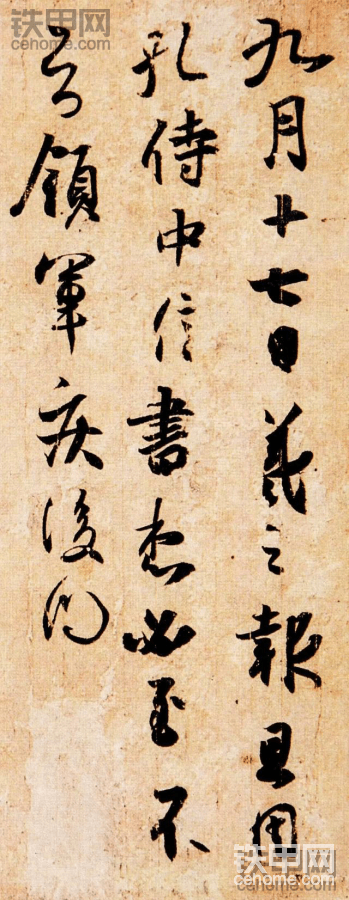 九月十七日羲之報且因
孔侍中信書想必至不
知領軍疾後問
铁甲网
cehome.com
铁甲网
cehome.com